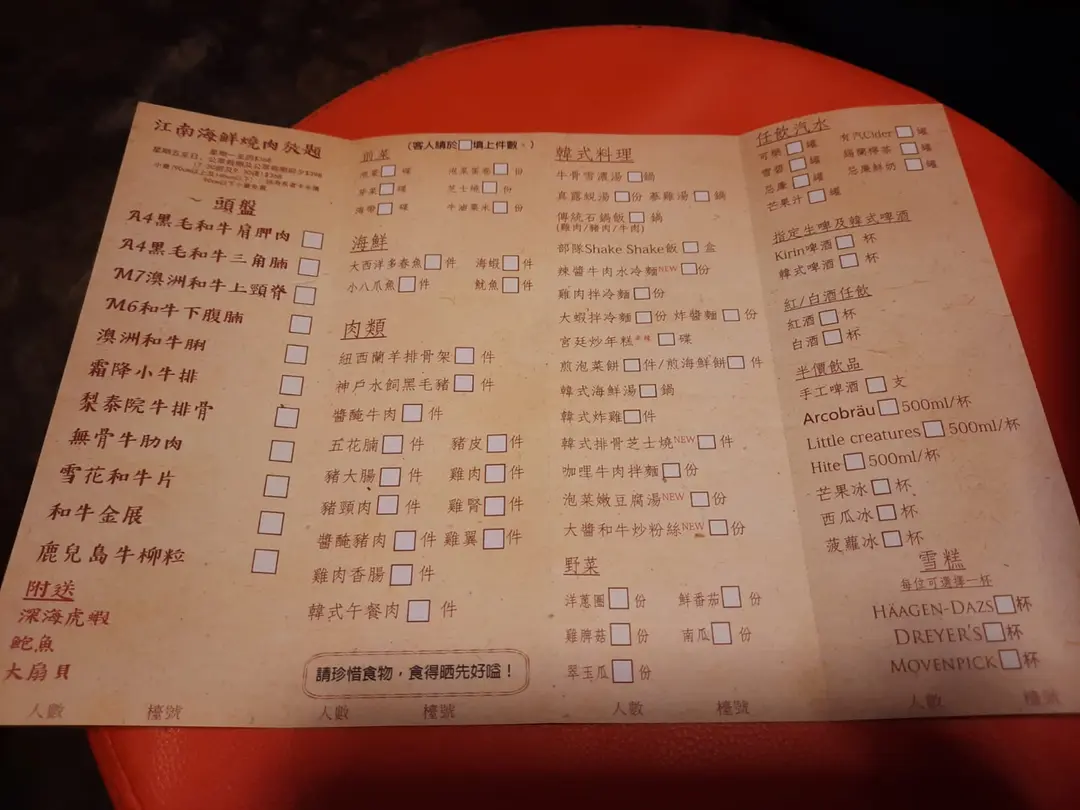 江南海鮮燒肉放題
~ 頭盤
A4黑毛和牛肩胛肉
A4黑毛和牛三角腩
M7澳洲和牛上頸脊
M6和牛下腹腩
澳洲和牛脷
霜降小牛排
梨泰院牛排骨
無骨牛肋肉
雪花和牛片
和牛金展
鹿兒島牛柳粒
附送
深海虎蝦
鮑魚
大扇貝
人數 檯號
前菜 (客人請於□填上件數。)
芽菜□碟 芝士橈□份
海帶□碟 牛油粟米□份
海鮮
大西洋多春魚□件 海蝦□件
小八爪魚□件 魷魚□件
肉類
紐西蘭羊排骨架□件
神戶水飼黑毛豬□件
醬醃牛肉□件
五花腩□件 豬皮□件
豬大腸□件 雞肉□件
豬頸肉□件 雞腎□件
醬醃豬肉□件 雞翼□件
雞肉香腸□件
韓式午餐肉□件
請珍惜食物，食得晒先好嗌！
人數 檯號
韓式料理
牛骨雪濃湯□鍋
真露蜆湯□份 蔘雞湯□鍋
傳統石鍋飯□鍋
(雞肉/豬肉/牛肉)
部隊Shake Shake飯□盒
辣醬牛肉水冷麵NEW□份
雞肉拌冷麵□份
大蝦拌冷麵□份 炸醬麵□份
宮廷炒年糕□碟
煎泡菜餅□件/煎海鮮餅□件
韓式海鮮湯□鍋
韓式炸雞□件
韓式排骨芝士燒NEW□件
咖哩牛肉拌麵□份
泡菜嫩豆腐湯NEW□份
大醬和牛炒粉絲NEW□份
野菜
洋蔥圈□份 鮮番茄□份
雞脾菇□份 南瓜□份
翠玉瓜□份
人數 檯號
任飲汽水
可樂□罐 有汽Cider□罐
雪碧□罐 錫蘭檸茶□罐
忌廉□罐 忌廉鮮奶□罐
芒果汁□罐
指定生啤及韓式啤酒
Kirin啤酒□杯
韓式啤酒□杯
紅/白酒任飲
紅酒□杯
白酒□杯
半價飲品
手工啤酒□支
Arcobräu□500ml/杯
Little creatures□500ml/杯
Hite□500ml/杯
芒果冰□杯
西瓜冰□杯
菠蘿冰□杯
雪糕
每位可選擇一杯
HÄAGEN-DAZS□杯
DREYER'S□杯
MOVENPICK□杯
人數 檯號